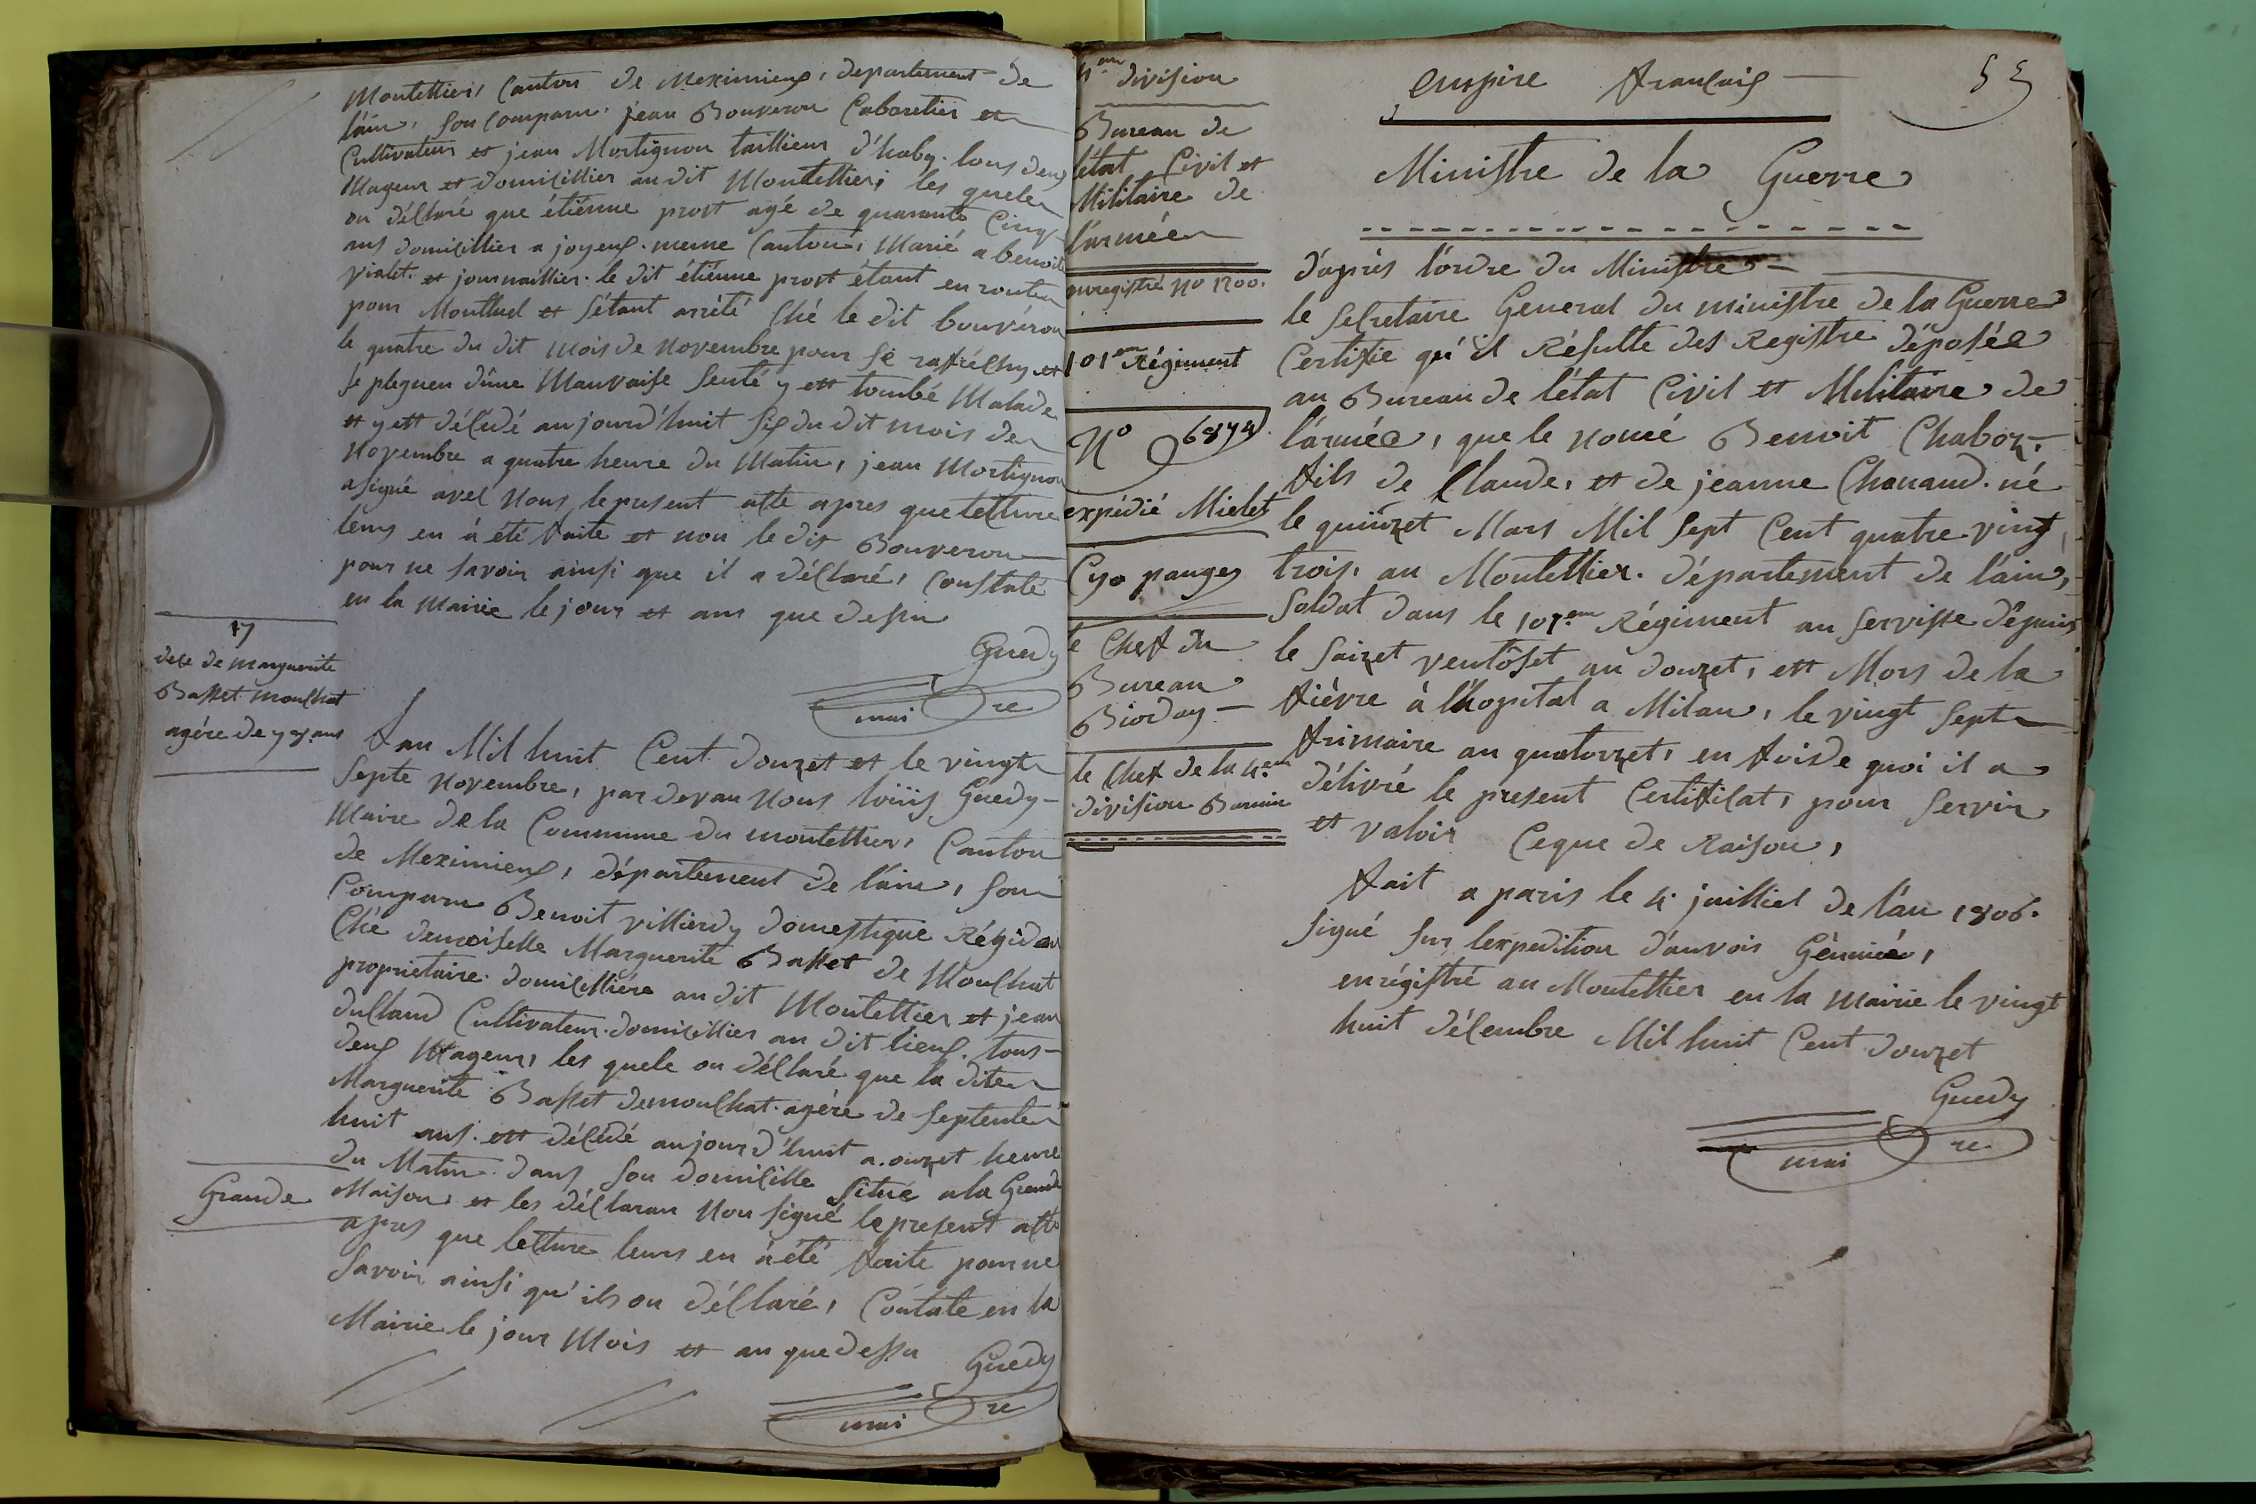 Montellier, Canton de Meximieux, departement de
l'ain, son comparu, jean Bouveron Cabaretier et
Cultivateur et jean Mortignon taillieur d'haby. tous deux
Mageur et domicillier au dit Montellier, les quele
on déclaré que étiénne prost agé de quarante Cinq
ans domicillier a joyeux. meme Canton, Marié a benoite
vialet. et journaillier. le dit étiénne prost étant en route
pour Montluel et s'étant arrété Ché le dit bouvéron
le quatre du dit mois de Novembre pour sé rafréchy et
se plegnen d'une Mauvaise senté y ett tombé Malade
et y ett décédé aujourd'huit six du dit mois de
Novembre a quatre heure du Matin, jean Mortignon
a signé avec Nous le present atte apres que letture
leurs en à été faite et non le dit Bouveron
pour ne savoir ainsi que il a déclaré, Constaté
en la Mairie le jour et ans que dessu
Guedy
mai re
17
dece de marguerite
Basset moulhat
agére de 78 ans
Lan Mil huit Cent douzet et le vingt
septe Novembre, par devan Nous loüis Guedy
Maire de la Commune du montellier, Canton
de Meximieux, département de l'ain, son
Comparu Benoit villierdy domestique Régidan
Ché demoiselle Marguerite Basset de Moulhat
proprietaire. domicilliére au dit Montellier et jean
dulland Cultivateur. domicillier au dit lieux. tous
deux Mageur, les quele on déclaré que la dite
Marguerite Basset demoulhat. agére de septente
huit ans. ett décédé aujourd'huit a. onzet heure
du Matin. dans son domicille situé a la Grande
Grande
Maison. et les déclaran Non signé le present atte
apres que letture leurs en à été faite pour ne
savoir ainsi qu'ils on déclaré, Contate en la
Mairie le jour Mois et an que dessu
Guedy
mai re
4em division
Bureau de
l'état Civil et
Militaire de
l'armée
enregistré No 1200.
101em Régiment
No 6874
expédié Mielet
Cyo pauges
le Chef du
Bureau
Bioday
le Chef de la 4em
division Barnier
55
empire français
Ministre de la Guerre
d'après l'ordre du Ministre
le secretaire General du ministre de la Guerre
Certifie qu'il Résulte des Registre déposée
au Bureau de l'état Civil et Militaire de
l'armée, que le nomé Benoit Chaboz.
fils de Claude, et de jeanne Chanaud. né
le quinzet Mars Mil sept Cent quatre vingt
trois, au Montellier. département de l'ain,
soldat dans le 101em Régiment au servisse dépuis
le saizet ventôset an douzet, ett Mors de la
fièvre à l'hopital a Milan, le vingt sept
frimaire an quatorzet, en foi de quoi il a
délivré le present Certificat, pour servir
et valoir Ceque de Raison,
fait a paris le 4 juilliet de l'an 1806.
signé sur lexpedition d'auvois Géniéé,
enrégistré au Montellier en la Mairie le vingt
huit décembre Mil huit Cent douzet
Guedy
mai re.